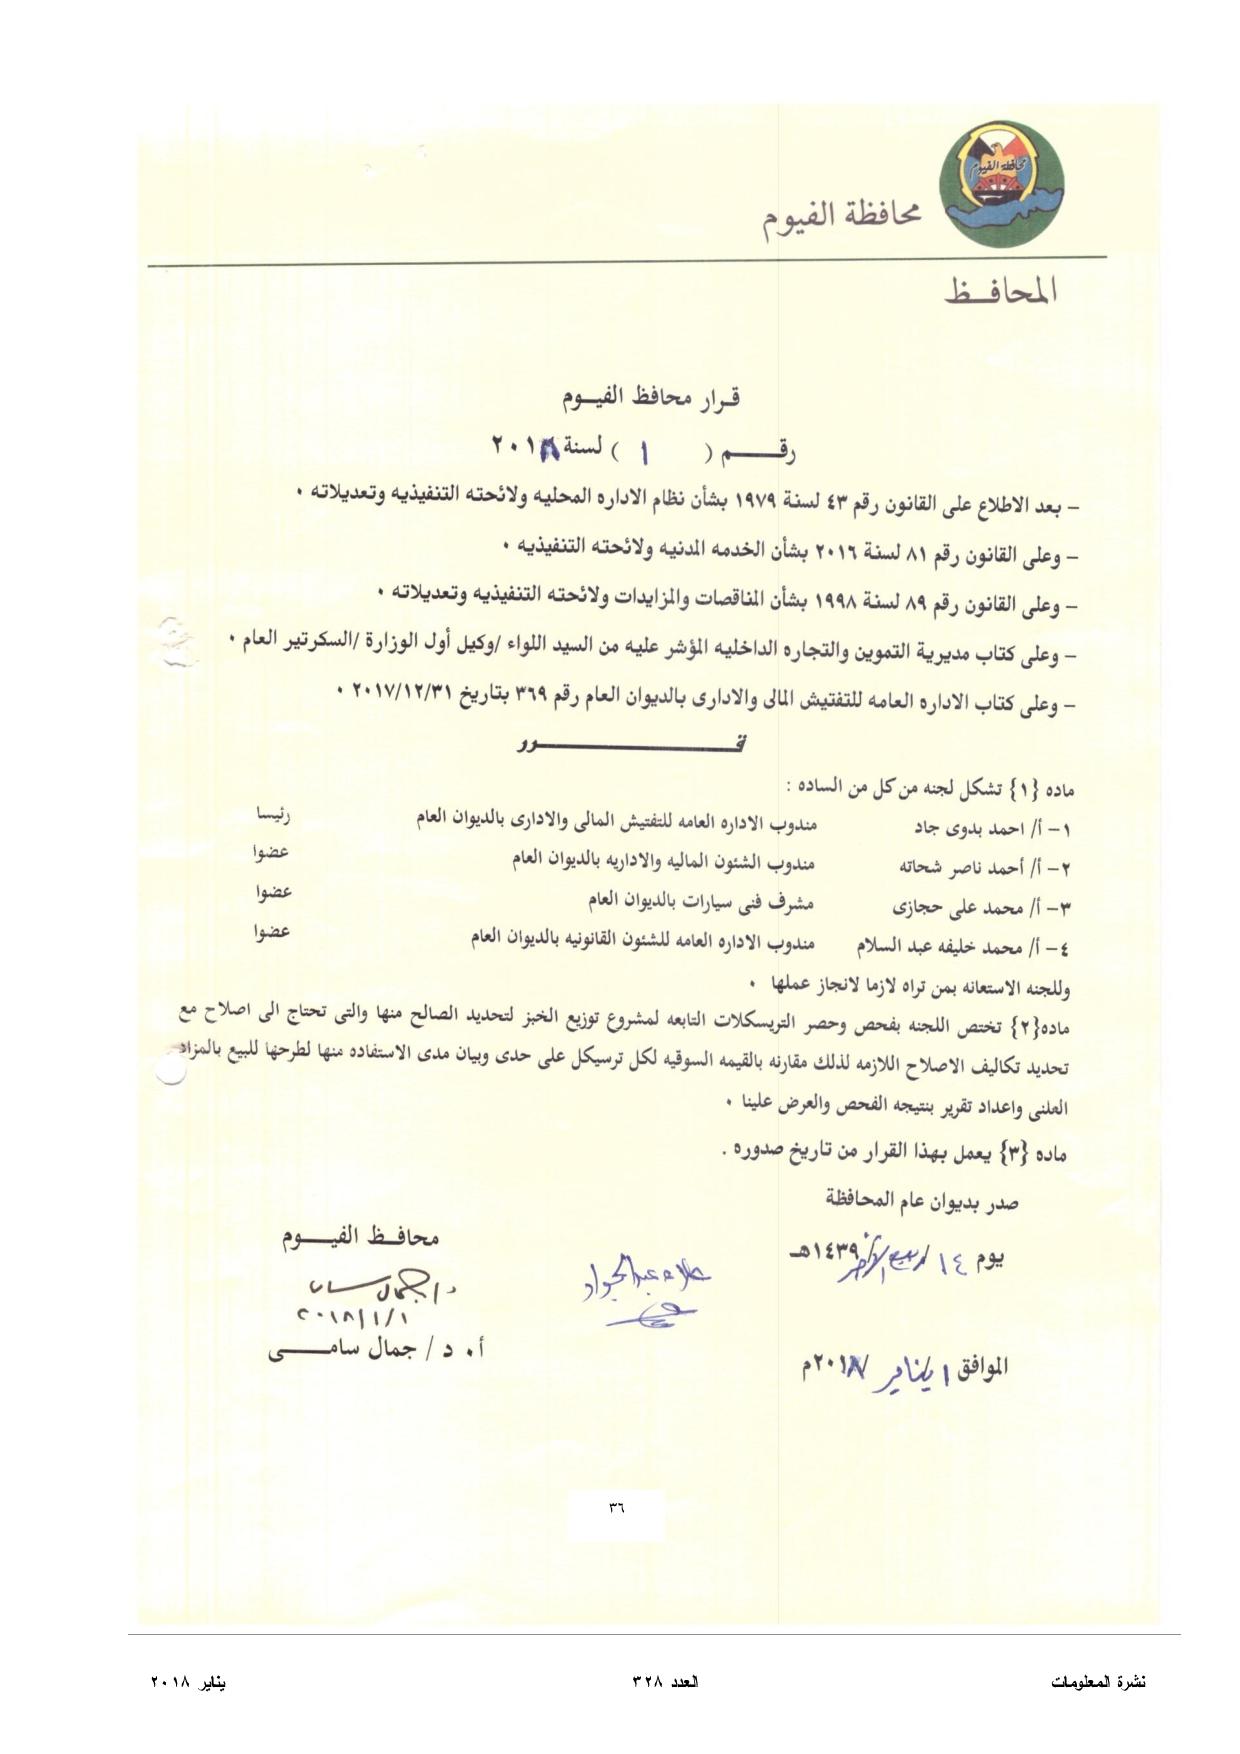 محافظة الفيوم
محافظة الفيوم
المحافـــظ
قـرار محافظ الفيـــوم
رقــــــم ( ١ ) لسنة ٢٠١٨
– بعد الاطلاع على القانون رقم ٤٣ لسنة ١٩٧٩ بشأن نظام الاداره المحليه ولائحته التنفيذيه وتعديلاته ٠
– وعلى القانون رقم ٨١ لسنة ٢٠١٦ بشأن الخدمه المدنيه ولائحته التنفيذيه ٠
– وعلى القانون رقم ٨٩ لسنة ١٩٩٨ بشأن المناقصات والمزايدات ولائحته التنفيذيه وتعديلاته ٠
– وعلى كتاب مديرية التموين والتجاره الداخليه المؤشر عليه من السيد اللواء /وكيل أول الوزارة /السكرتير العام ٠
– وعلى كتاب الاداره العامه للتفتيش المالى والادارى بالديوان العام رقم ٣٦٩ بتاريخ ٢٠١٧/١٢/٣١ ٠
قـــــــــــــــــــــرر
ماده {١} تشكل لجنه من كل من الساده :
١– أ/ احمد بدوى جاد مندوب الاداره العامه للتفتيش المالى والادارى بالديوان العام رئيسا
٢– أ/ أحمد ناصر شحاته مندوب الشئون الماليه والاداريه بالديوان العام عضوا
٣– أ/ محمد على حجازى مشرف فنى سيارات بالديوان العام عضوا
٤– أ/ محمد خليفه عبد السلام مندوب الاداره العامه للشئون القانونيه بالديوان العام عضوا
وللجنه الاستعانه بمن تراه لازما لانجاز عملها ٠
ماده{٢} تختص اللجنه بفحص وحصر التريسكلات التابعه لمشروع توزيع الخبز لتحديد الصالح منها والتى تحتاج الى اصلاح مع
تحديد تكاليف الاصلاح اللازمه لذلك مقارنه بالقيمه السوقيه لكل ترسيكل على حدى وبيان مدى الاستفاده منها لطرحها للبيع بالمزاد
العلنى واعداد تقرير بنتيجه الفحص والعرض علينا ٠
ماده {٣} يعمل بهذا القرار من تاريخ صدوره .
صدر بديوان عام المحافظة
يوم ١٤ / ربيع الآخر / ١٤٣٩هـ
الموافق ١ / يناير / ٢٠١٨م
علاء عبد الجواد
محافـظ الفيـــوم
د/جمال سامى
٢٠١٨/١/١
أ٠ د / جمال سامـــــى
٣٦
نشرة المعلومات العدد ٣٢٨ يناير ٢٠١٨